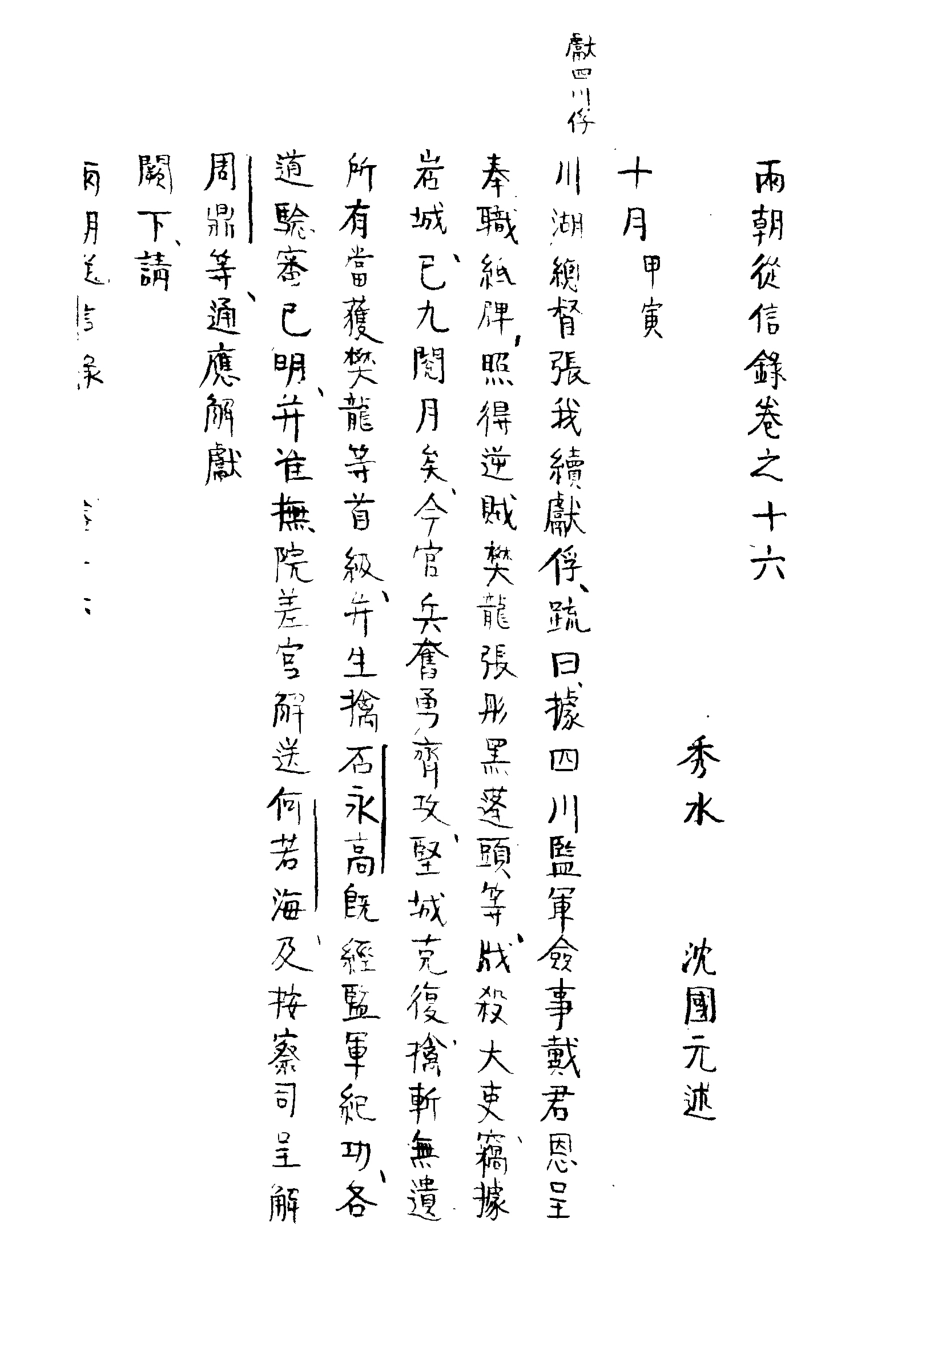 兩朝從信錄卷之十六
秀水 沈國元述
十月甲寅
獻四川俘
川湖總督張我續獻俘、疏曰、據四川監軍僉事戴君恩呈
奉職紙牌、照得逆賊樊龍張彤黑蓬頭等、戕殺大吏、竊據
岩城、已九閱月矣、今官兵奮勇齊攻、堅城克復、擒斬無遺
所有當獲樊龍等首級、并生擒石永高既經監軍紀功、各
道驗審已明、并准撫院差官解送何若海、及按察司呈解
周鼎等、通應解獻
闕下、請
兩月從信彔